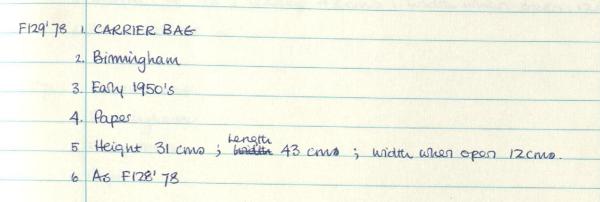 F129'78 1. CARRIER BAG
2. Birmingham
3. Early 1950's
4. Paper
5 Height 31 cms ; Length 43 cms ; width when open 12cms.
6 As F128'78